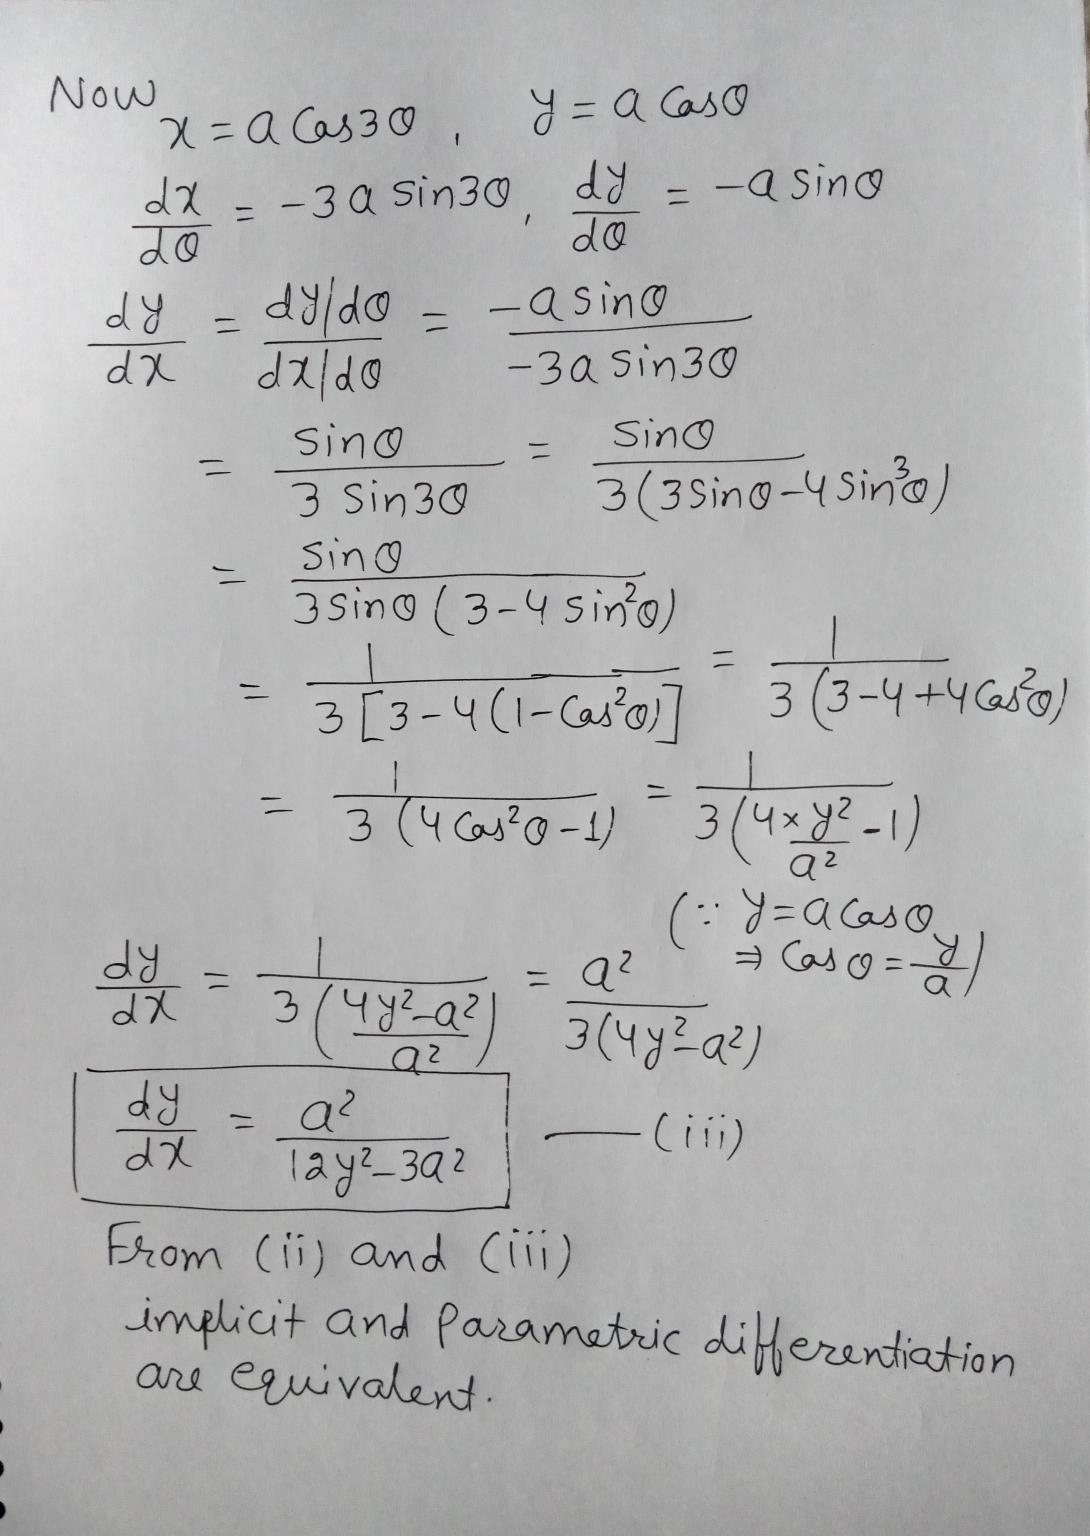 Now
x = a Cos3θ , y = a Cosθ
dx/dθ = -3a sin3θ, dy/dθ = -a sinθ
dy/dx = (dy/dθ)/(dx/dθ) = (-a sinθ)/(-3a sin3θ)
= sinθ/(3 Sin3θ) = Sinθ/(3(3Sinθ-4Sin³θ))
= Sinθ/(3Sinθ(3-4Sin²θ))
= 1/(3[3-4(1-Cos²θ)]) = 1/(3(3-4+4Cos²θ))
= 1/(3(4Cos²θ-1)) = 1/(3(4×y²/a²-1))
(∵ y=a Cosθ
⇒ Cosθ = y/a)
dy/dx = 1/(3((4y²-a²)/a²)) = a²/(3(4y²-a²))
dy/dx = a²/(12y²-3a²) —(iii)
From (ii) and (iii)
implicit and Parametric differentiation
are equivalent.